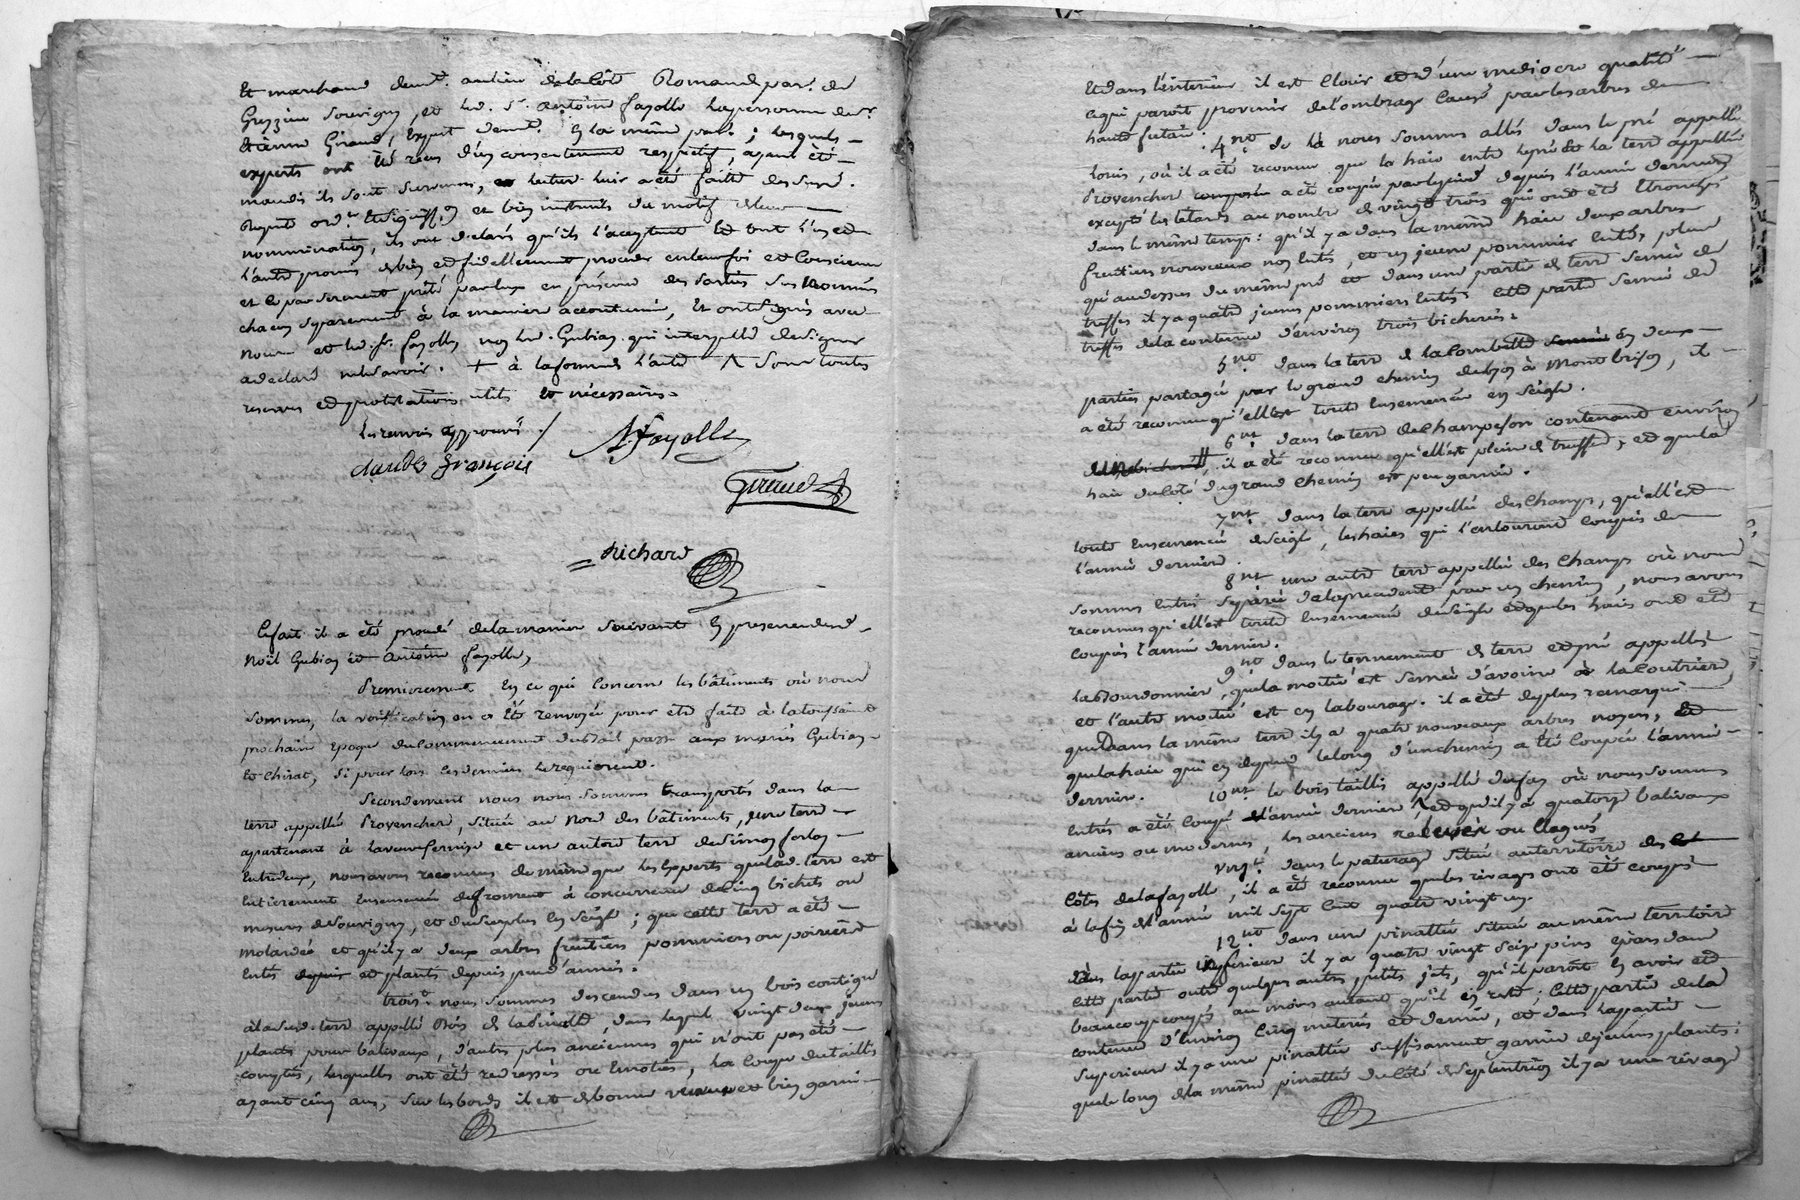 Et marchand demt. au lieu de la Côte Romand par. de
Grezzieu Souvigny, et led. Sr. antoine fayolle la personne de Sr.
Etienne Giraud, Expert demt. En la même par.; lesquels
experts ont été reçus d'un consentement respectif, ayant été
mandés ils sont survenus, lecture leur a été faite de susd.
Requte ordce. et signiffon, et bien instruits du motif de leur
nomination, ils ont déclaré qu'ils l'acceptent Et ont l'un et
l'autre promis de bien et fidellement procéder en leur foi et Conscience
et ce par serment prêté par eux en présence des parties sus Nommés
chacun séparement à la manière accoutumé, Et ont signés avec
nous et led. Sr. fayolle non led. Gubian qui interpellé de signer
a déclaré ne le savoir. + à la forme de l'acte Λ Sous toutes
réserves et protestations utiles et nécessaires.
Les renvois approuvés /
Claude françois
Afayolle
Giraud
Richard
Ce fait il a été procédé de la manière suivante En présence desd.
Noël Gubian et Antoine fayolle,
Premierement En ce qui Concerne les bâtiments où nous
sommes, la vérification en a Été renvoyée pour être faite à la toussaint
prochain époque du Commencement du bail passé aux mariés Gubian
et Chirat, si pour lors ces derniers le requierent.
Secondement nous nous sommes transportés dans la
terre appellée Provenchere, située au Nord des bâtiments, une terre
apartenant à la veuve fernise et un autre terre de Simon forlon
Entredeux, nous avons reconnus de même que les Experts que lad. terre est
Entierement Ensemencée de froment à concurrence de cinq bichets ou
mesures de Souvigny, et du surplus En Seigle; que cette terre a été
molardée et qu'il y a deux arbres fruitiers pommiers ou poiriers
Entés depuis et plantés depuis peu d'années.
troist. nous sommes descendus dans un bois contigu
à la susd. terre appellé Bois de la pinatte, dans lequel vingt deux jeunes
plants pour balivaux, d'autres plus anciennes qui n'ont pas été
comptés, lesquelles ont été redressés ou Emotés, la Coupe du taillis
ayant cinq ans, sur les bords il est de bonne venue et bien garni
Et dans l'interieur il est Clair et d'une mediocre qualité
ce qui paroît provenir de l'ombrage Causé par les arbres de
haute futaie. 4nt. de là nous sommes allés dans le pré appellé
louis, où il a été reconnu que la haie entre le pré et la terre appellée
Provenchere composée a été coupée par le pied depuis l'année derniere
excepté les têtards au nombre de vingt trois qui ont été Etronchés
dans le même temps: qu'il y a dans la même haie deux arbres
fruitiers nouveaux non Entés, et un jeune pommier Enté, plus
qu'au dessus du même pré et dans une partie de terre semée de
treffles il y a quatre jeunes pommiers Entés. Cette partie semée de
treffles de la contenue d'environ trois bicherées.
5nt. dans la terre de la Combette semée En deux
parties partagée par le grand chemin de Lyon à Montbrison, il
a été reconnu qu'elle est toute Ensemencée en Seigle.
6nt. dans la terre de Champeson contenant environ
une bicherée, il a été reconnu qu'elle est pleine de treffles, et que la
haie du Côté du grand chemin est peu garnie.
7nt. dans la terre appellée des Champs, qu'elle est
toute Ensemencée de Seigle, les haies qui l'entourent Coupées de
l'année derniere.
8nt. une autre terre appellée des Champs où nous
sommes Entrés séparée de la précedente par un chemin, nous avons
reconnus qu'elle est toute Ensemencée de Seigle et que les haies ont été
coupées l'année derniere.
9nt. dans le tennement de terre et pré appellés
la Bourdonnier, que la moitié est semée d'avoine à la Coutriere
et l'autre moitié est en labourage. il a été de plus remarqué
que Dans la même terre il y a quatre nouveaux arbres noyers, Et
que la haie qui en depend le long d'un chemin a été Coupée l'année
derniere. 10nt. le bois taillis appellé du fay où nous sommes
Entrés a été Coupé d'l'année derniere, Λ et qu'il y a quatorze balivaux
anciens ou modernes, les anciens relevés ou Elagués
vngt. dans le paturage situé au territoire des Et
Côtes de la fayolle, il a été reconnu que les rivages ont été coupés
à la fin de l'année mil sept cent quatre vingt un.
12nt. dans une pinattée située au même territoire
dans la partie inférieure il y a quatre vingt seize pins épars dans
cette partie outre quelques autres petits jets, qu'il paroît En avoir été
beaucoup coupés au moins autant qu'il en reste; Cette partie de la
contenue d'Environ Cinq meterées et demie, et dans la partie
superieure il y a une pinattée suffisament garnie de jeunes plants:
que le long de la même pinattée du Côté de Septentrion il y a une rivage